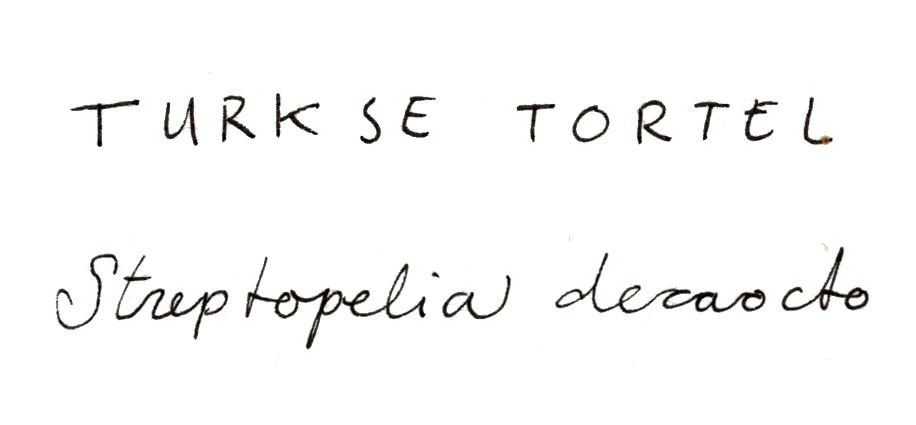 TURKSE TORTEL
Streptopelia decaocto